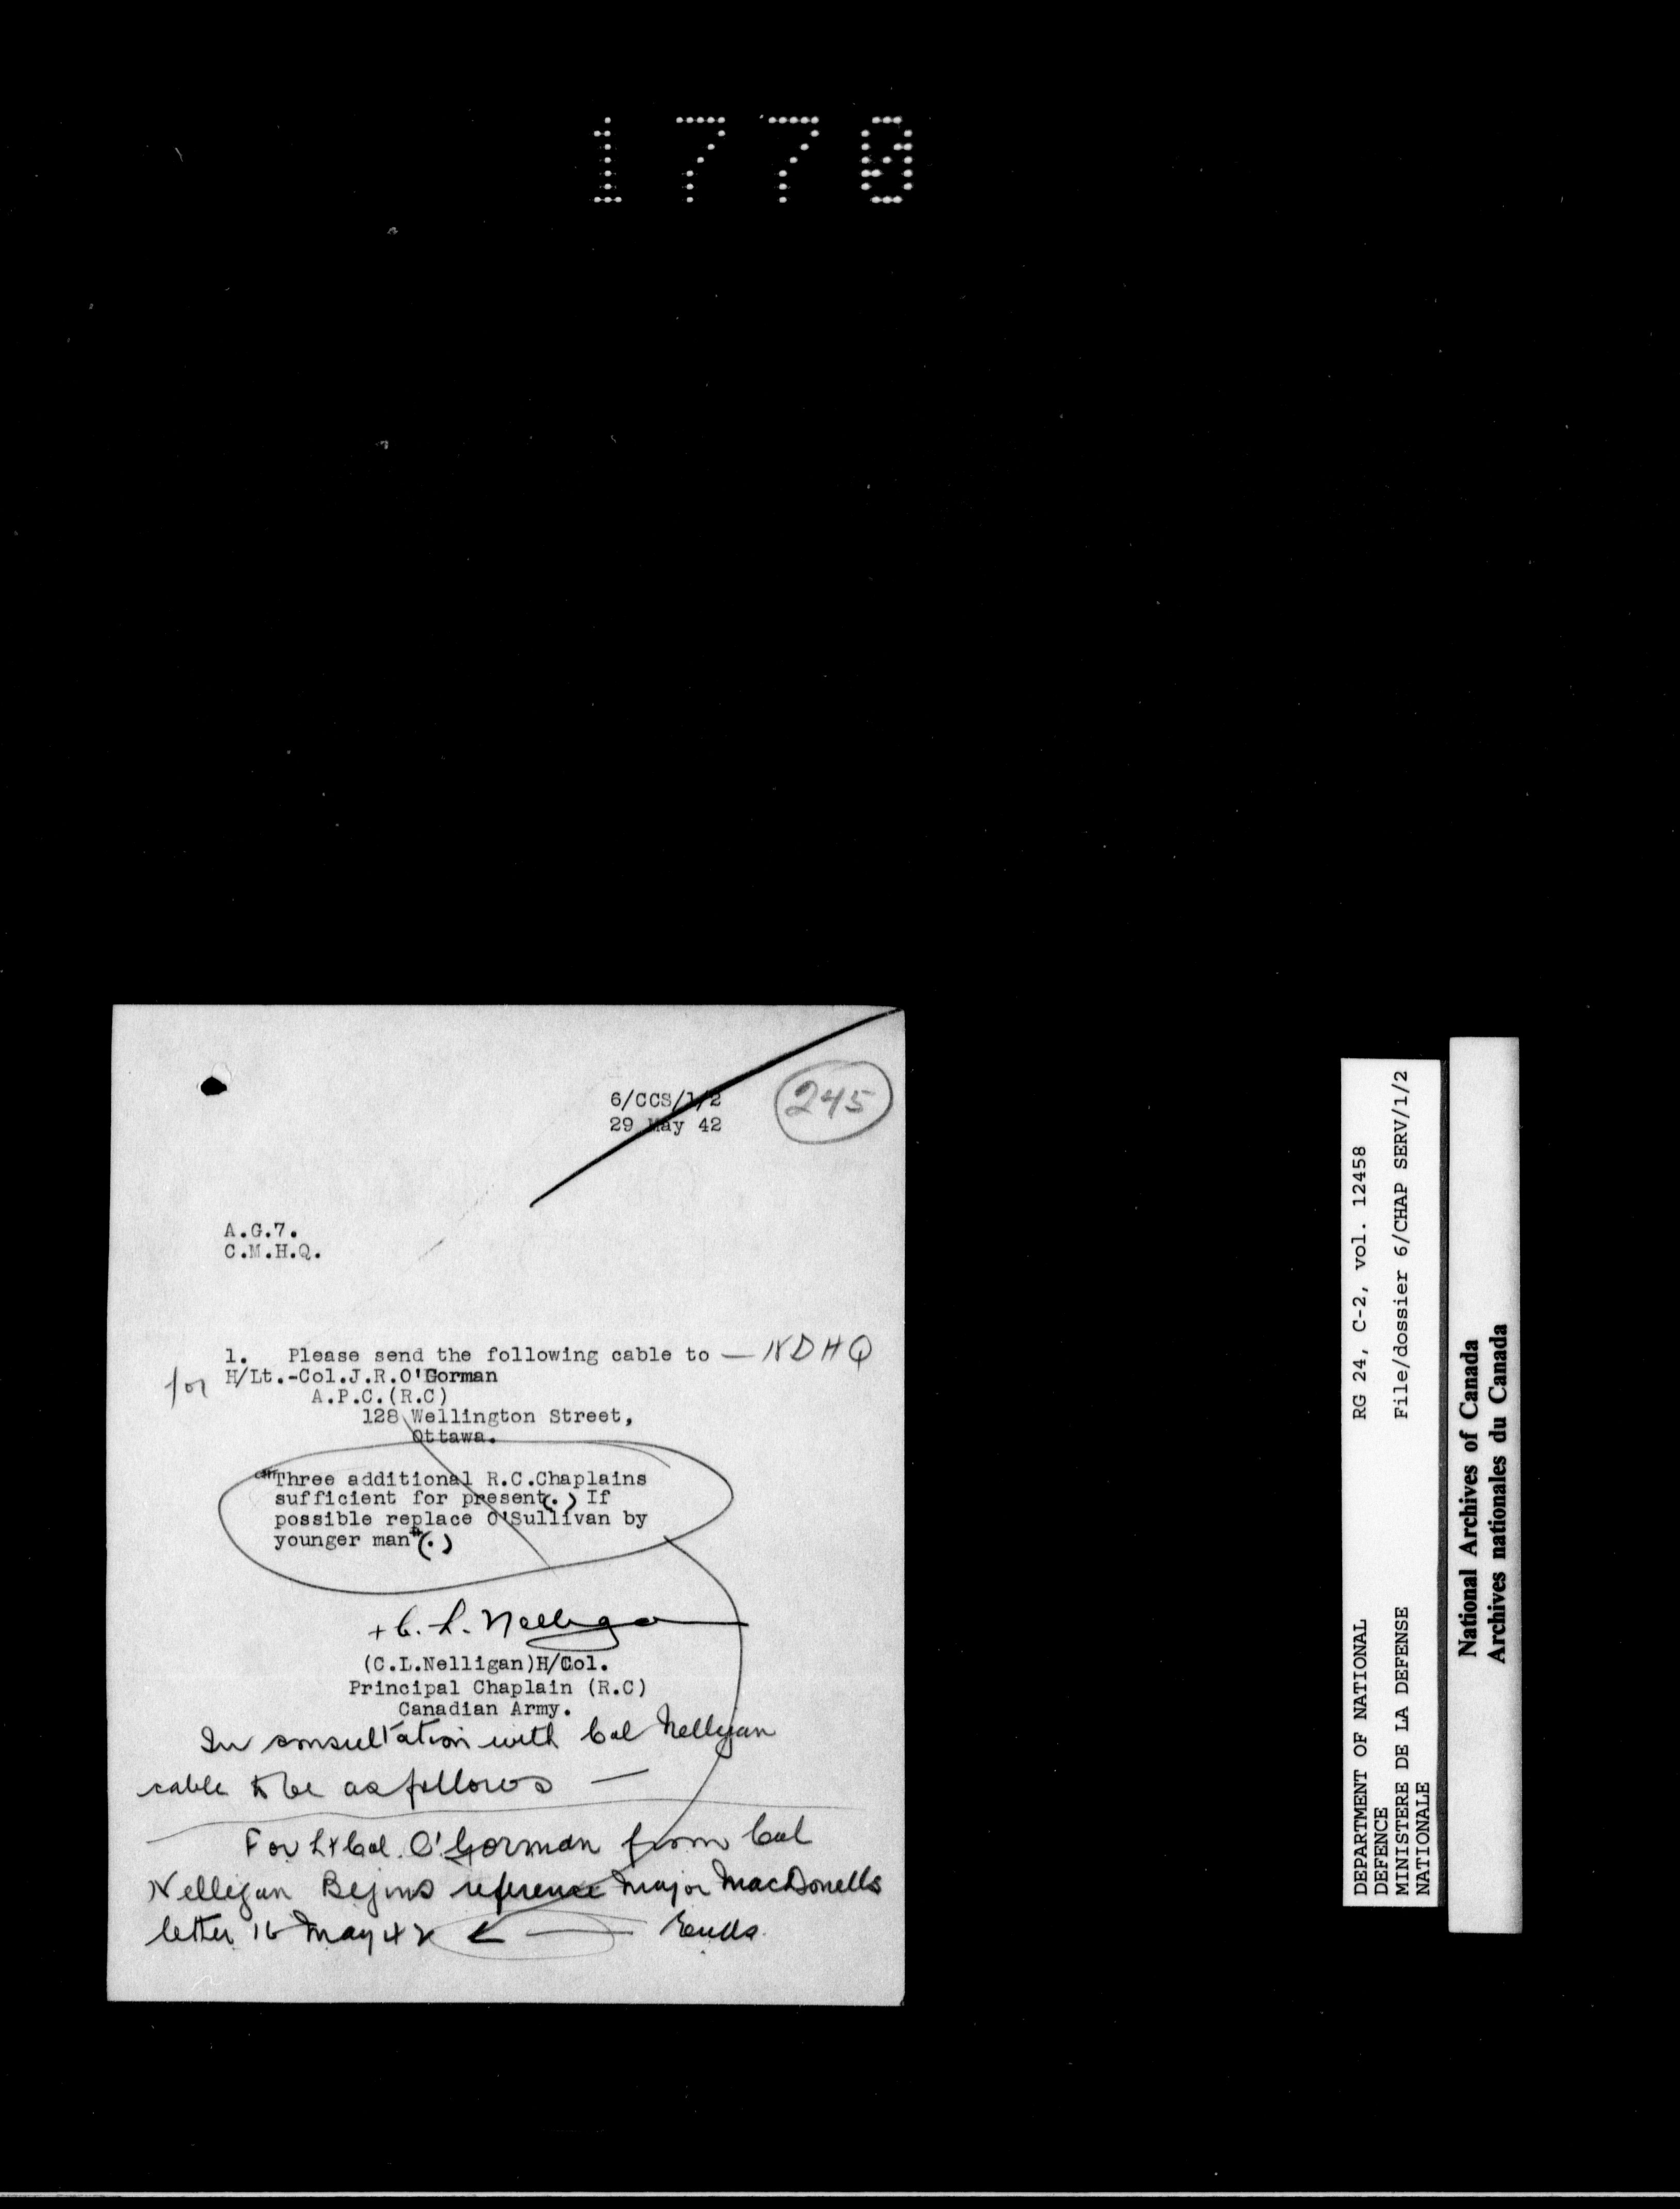 1770
6/CCS/1/2
29 May 42
245
A.G.7.
C.M.H.Q.
1. Please send the following cable to — NDHQ
for H/Lt.-Col.J.R.O'Gorman
A.P.C.(R.C)
128 Wellington Street,
Ottawa.
"Three additional R.C.Chaplains
sufficient for present(.) If
possible replace O'Sullivan by
younger man"(.)
+ C. L. Nelligan
(C.L.Nelligan)H/Col.
Principal Chaplain (R.C)
Canadian Army.
In consultation with Col Nelligan
cable to be as follows —
For Lt Col. O'Gorman from Col
Nelligan Begins reference Major MacDonells
letter 16 May 42 Ends.
DEPARTMENT OF NATIONAL RG 24, C-2, vol. 12458
DEFENCE
MINISTERE DE LA DEFENSE File/dossier 6/CHAP SERV/1/2
NATIONALE
National Archives of Canada
Archives nationales du Canada